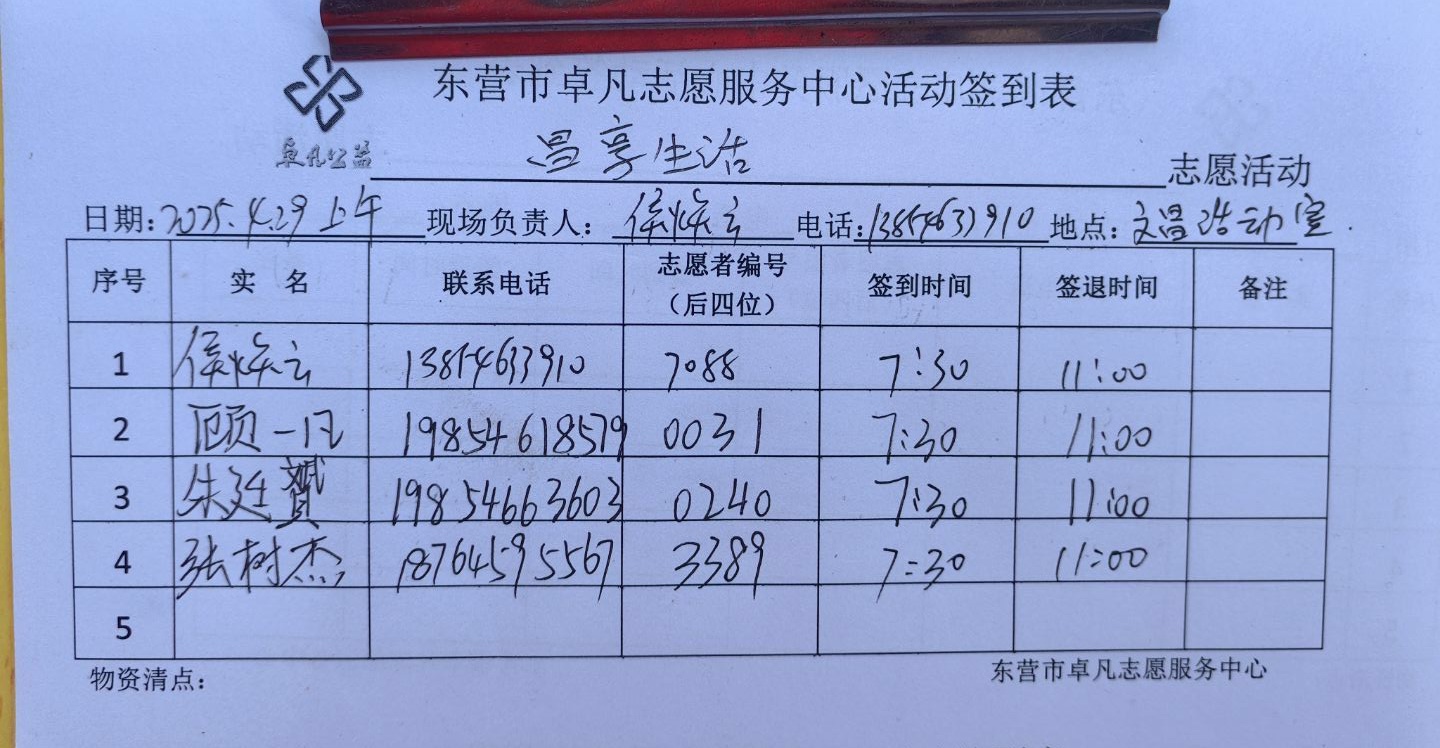 东营市卓凡志愿服务中心活动签到表
卓凡公益
昌享生活 志愿活动
日期:2025.4.29上午 现场负责人:侯焕云 电话:13854633910 地点:文昌活动室.
序号 实名 联系电话 志愿者编号（后四位） 签到时间 签退时间 备注
1 侯焕云 13854633910 7088 7:30 11:00
2 顾一凡 19854618579 0031 7:30 11:00
3 朱廷赟 19854663603 0240 7:30 11:00
4 张树杰 18764595567 3389 7:30 11:00
5
物资清点: 东营市卓凡志愿服务中心